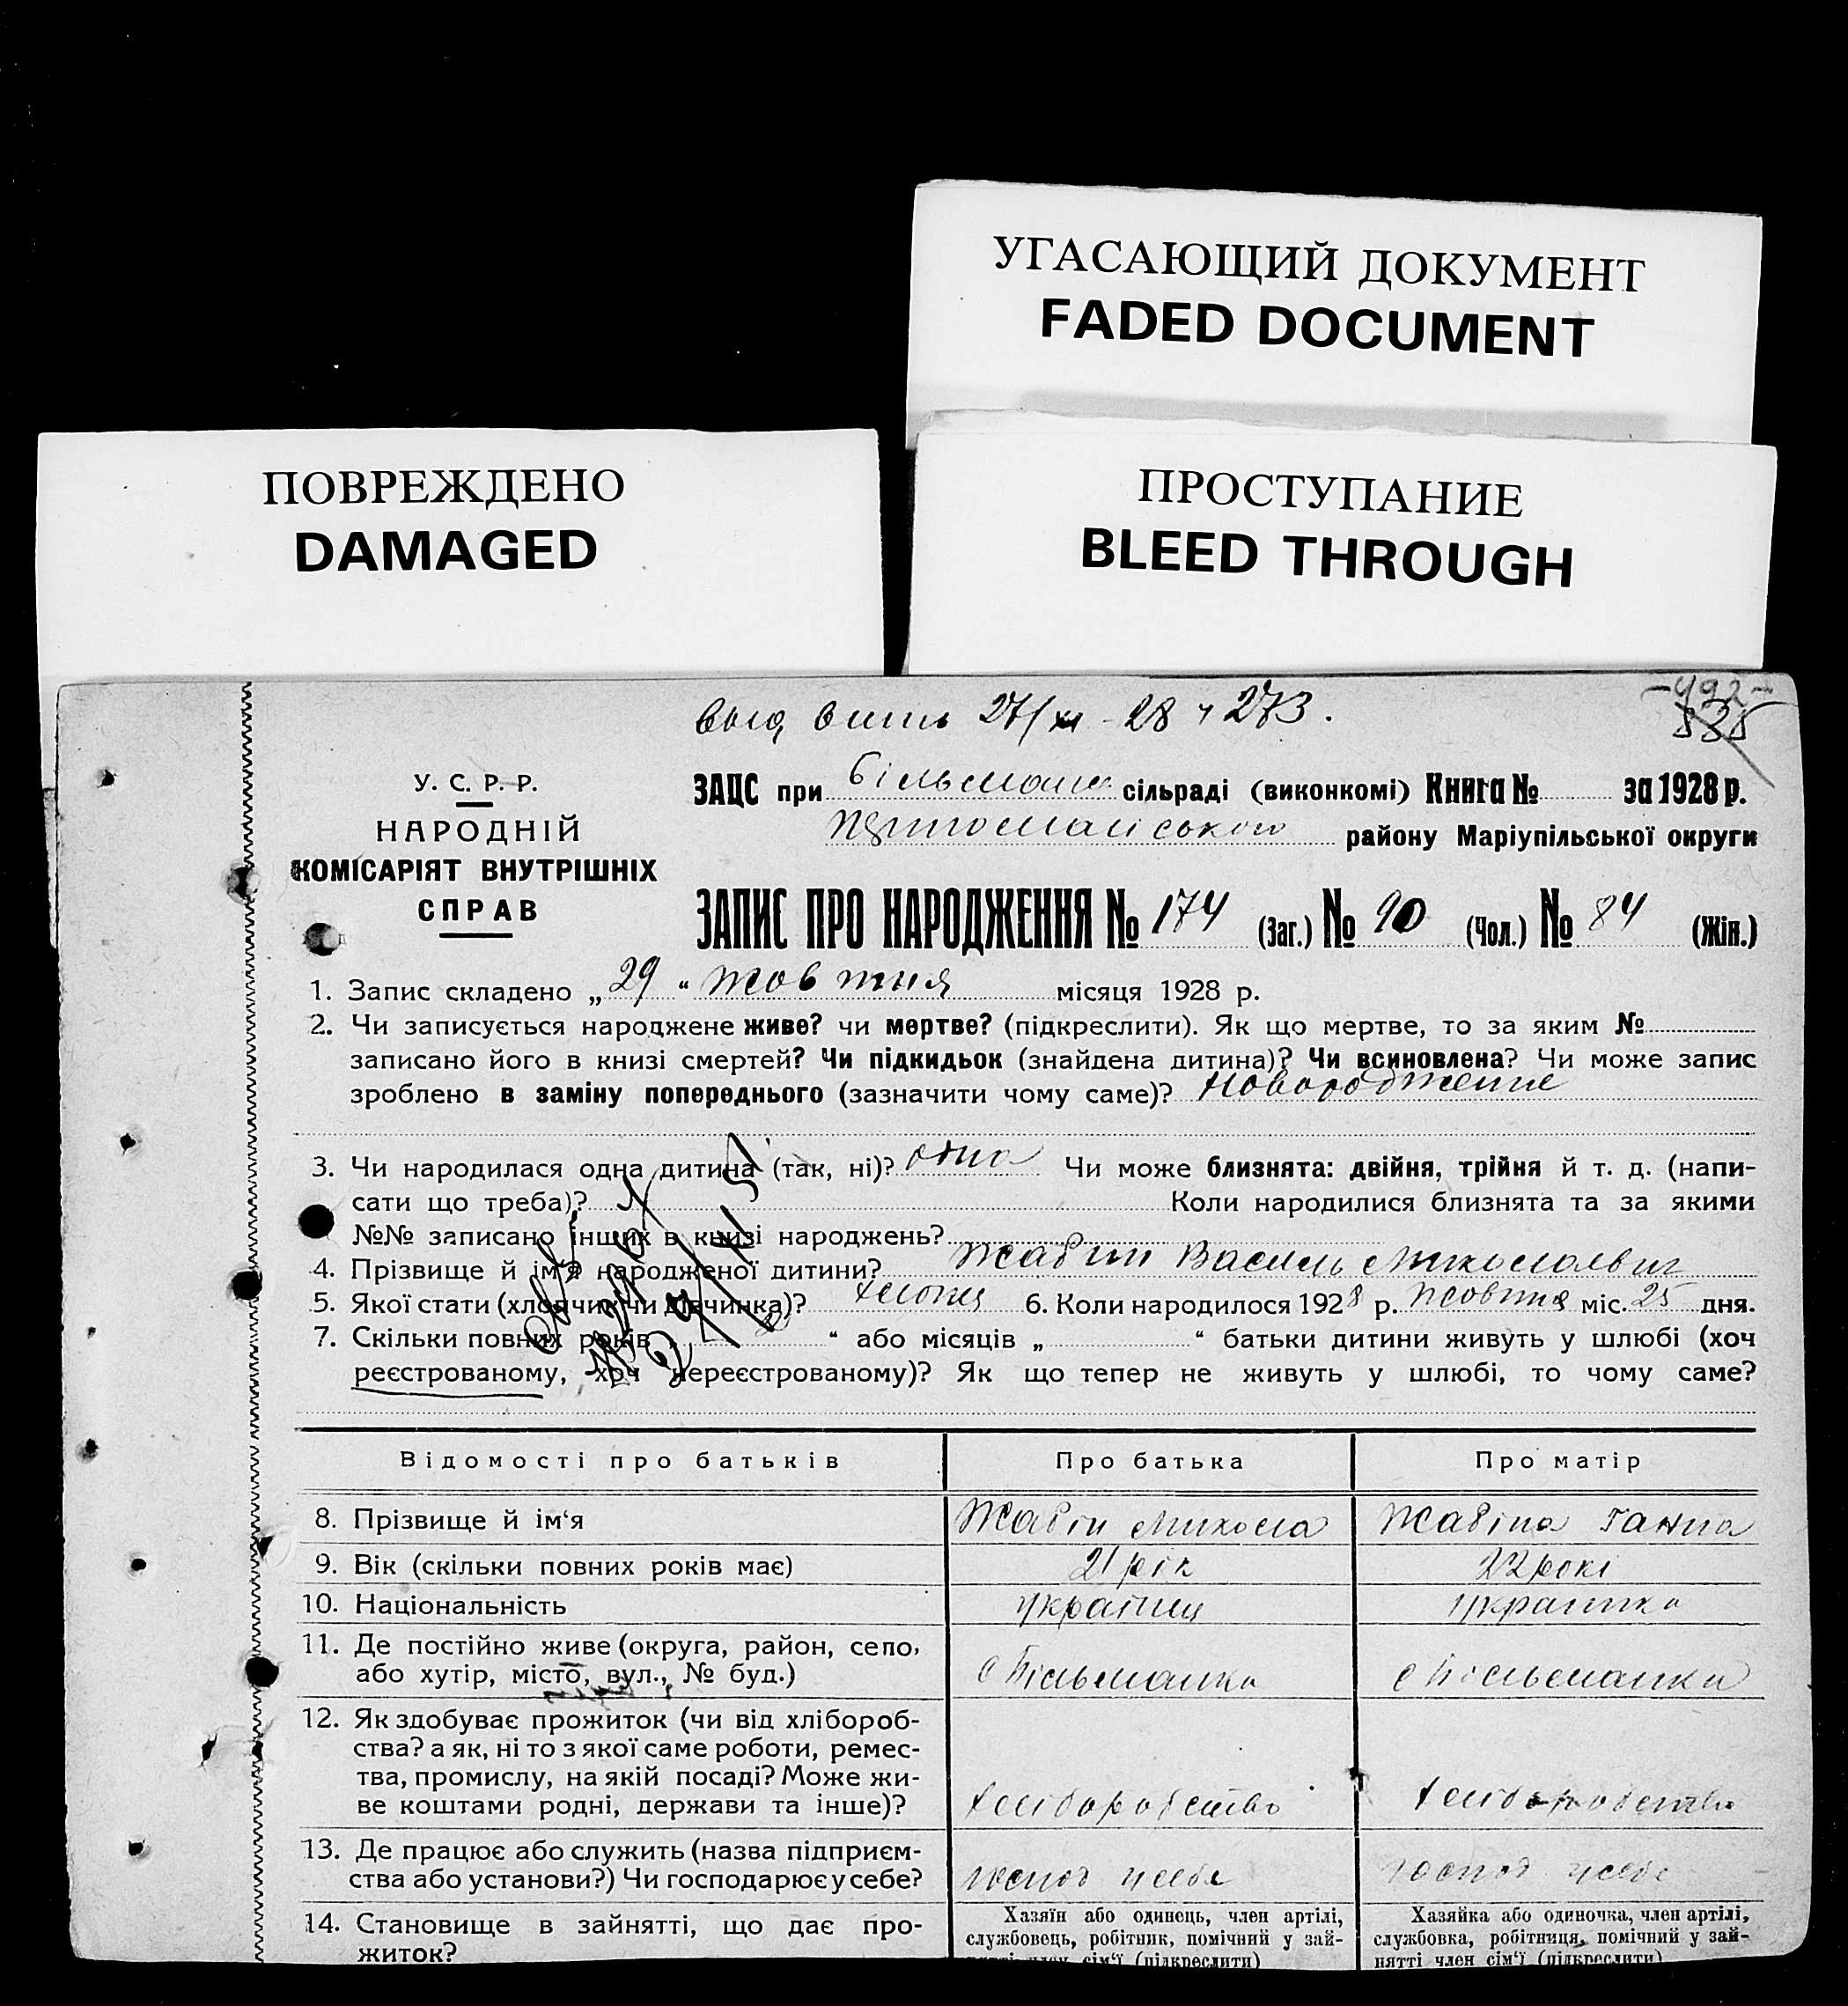 УГАСАЮЩИЙ ДОКУМЕНТ
FADED DOCUMENT
ПОВРЕЖДЕНО
DAMAGED
ПРОСТУПАНИЕ
BLEED THROUGH
-492-
535
27/XI - 28 273.
У. С. Р. Р.
НАРОДНІЙ
КОМІСАРІЯТ ВНУТРІШНІХ
СПРАВ
ЗАЦС при Більманс сільраді (виконкомі) Книга № за 1928 р.
району Маріупільської округи
ЗАПИС ПРО НАРОДЖЕННЯ № 174 (Заг.) № 90 (Чол.) № 84 (Жін.)
1. Запис складено „ 29 “ жовтня місяця 1928 р.
2. Чи записується народжене живе? чи мертве? (підкреслити). Як що мертве, то за яким №
записано його в книзі смертей? Чи підкидьок (знайдена дитина)? Чи всиновлена? Чи може запис
зроблено в заміну попереднього (зазначити чому саме)? Новорожденне
3. Чи народилася одна дитина (так, ні)? одна Чи може близнята: двійня, трійня й т. д. (напи-
сати що треба)? Коли народилися близнята та за якими
№№ записано інших в книзі народжень?
4. Прізвище й ім'я народженої дитини? Жабін Василь Миколаевич
5. Якої стати (хлопчик чи дівчинка)? хлопец 6. Коли народилося 1928 р. Жовтня міс. 25 дня.
7. Скільки повних років „ “ або місяців „ “ батьки дитини живуть у шлюбі (хоч
реєстрованому, хоч нереєстрованому)? Як що тепер не живуть у шлюбі, то чому саме?
Відомості про батьків Про батька Про матір
8. Прізвище й ім‘я Жабін Микола Жабіна Ганна
9. Вік (скільки повних років має) 21 рік 22 рокі
10. Національність українец українка
11. Де постійно живе (округа, район, село,
або хутір, місто, вул., № буд.) с Більманка с Більманка
12. Як здобуває прожиток (чи від хлібороб-
ства? а як, ні то з якої саме роботи, ремес-
тва, промислу, на якій посаді? Може жи-
ве коштами родні, держави та інше)? хліборобство хліборобство
13. Де працює або служить (назва підприєм-
ства або установи?) Чи господарює у себе? господ у себе господ у себе
14. Становище в зайнятті, що дає про-
житок?
Хазяїн або одинець, член артілі,
службовець, робітник, помічний у зай-
нятті член сім‘ї (підкреслити)
Хазяйка або одиночка, член артілі,
службовка, робітниця, помічний у зай-
нятті член сім‘ї (підкреслити)